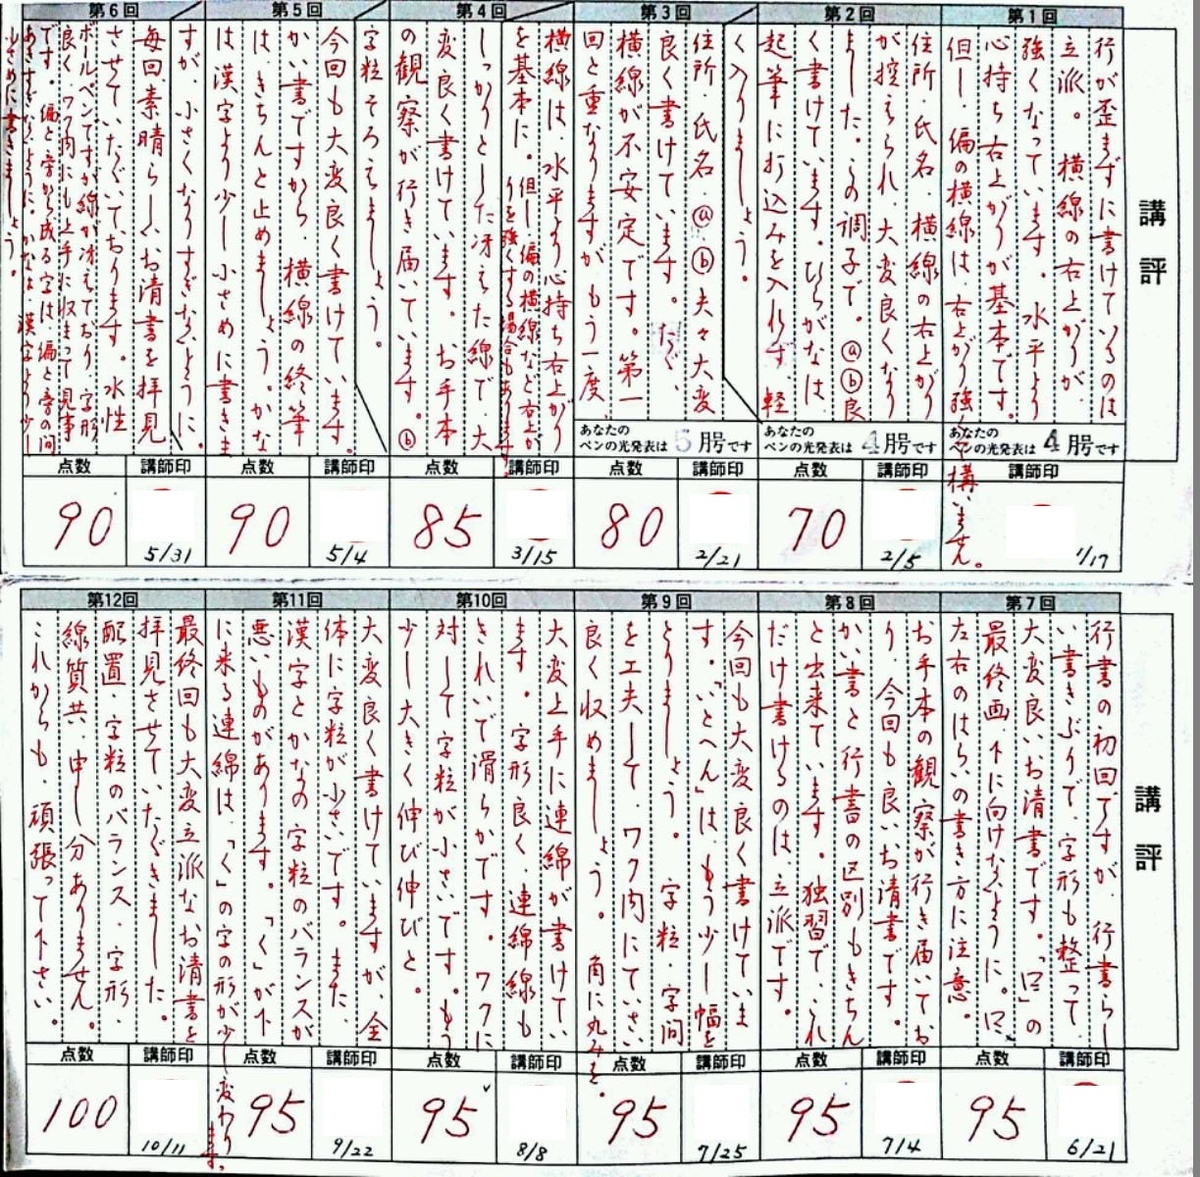 講評
第1回
行が歪まずに書けているのは
立派。横線の右上がりが
強くなっています。水平より
心持ち右上がりが基本です。
但し、偏の横線は、右上がり強
くて構いません。
あなたの
ペンの光発表は 4 月号です
講師印
1/17
第2回
住所、氏名、横線の右上がり
が控えられ、大変良くなり
ました。この調子で。ⓐⓑ良
く書けています。ひらがなは、
起筆に打込みを入れず、軽
く入りましょう。
あなたの
ペンの光発表は 4 月号です
点数
講師印
70
2/5
第3回
住所、氏名、ⓐⓑ夫々大変
良く書けています。ただ、
横線が不安定です。第一
回と重なりますが、もう一度、
あなたの
ペンの光発表は 5 月号です
点数
講師印
80
2/21
第4回
横線は、水平より心持ち右上がり
を基本に。但し、偏の横線など右上が
りを強くする場合もあります。
しっかりとした冴えた線で、大
変良く書けています。お手本
の観察が行き届いています。ⓑ
字粒そろえましょう。
点数
講師印
85
3/15
第5回
今回も大変良く書けています。
かい書ですから、横線の終筆
は、きちんと止めましょう。かな
は漢字より少し小さめに書きま
すが、小さくなりすぎないように。
点数
講師印
90
5/4
第6回
毎回素晴らしいお清書を拝見
させていただいております。水性
ボールペンですが線が冴えており、字形
良く、ワク内にも上手に収まって見事
です。偏と旁から成る字は、偏と旁の間
あきすぎないように。かなは、漢字より少し
小さめに書きましょう。
点数
講師印
90
5/31
講評
第7回
行書の初回ですが、行書らし
い書きぶりで、字形も整って、
大変良いお清書です。「口」の
最終画、下に向けないように。
左右のはらいの書き方に注意。
点数
講師印
95
6/21
第8回
お手本の観察が行き届いてお
り、今回も良いお清書です。
かい書と行書の区別もきちん
と出来ています。独習で、これ
だけ書けるのは、立派です。
点数
講師印
95
7/4
第9回
今回も大変良く書けていま
す。「いとへん」は、もう少し幅を
とりましょう。字粒、字間
を工夫して、ワク内にていさい
良く収めましょう。角に丸みを。
点数
講師印
95
7/25
第10回
大変上手に連綿が書けてい
ます。字形良く、連綿線も
きれいで滑らかです。ワクに
対して字粒が小さいです。もう
少し大きく伸び伸びと。
点数
講師印
95
8/8
第11回
大変良く書けていますが、全
体に字粒が小さいです。また、
漢字とかなの字粒のバランスが
悪いものがあります。「く」が下
に来る連綿は、「く」の字の形が少し変わります。
点数
講師印
95
9/22
第12回
最終回も大変立派なお清書を
拝見させていただきました。
配置、字粒のバランス、字形、
線質共、申し分ありません。
これからも、頑張って下さい。
点数
講師印
100
10/11